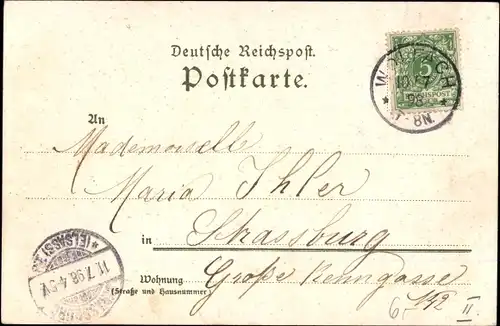 Deutsche Reichspost.
Postkarte.
5
10 / 7
98
7-8N.
REICHSPOST
An
Mademoiselle
Maria Ihler
in Strassburg
Wohnung Große Renngasse
(Straße und Hausnummer)
(ELSASS)
11.7.98.4-5V.
6,- II